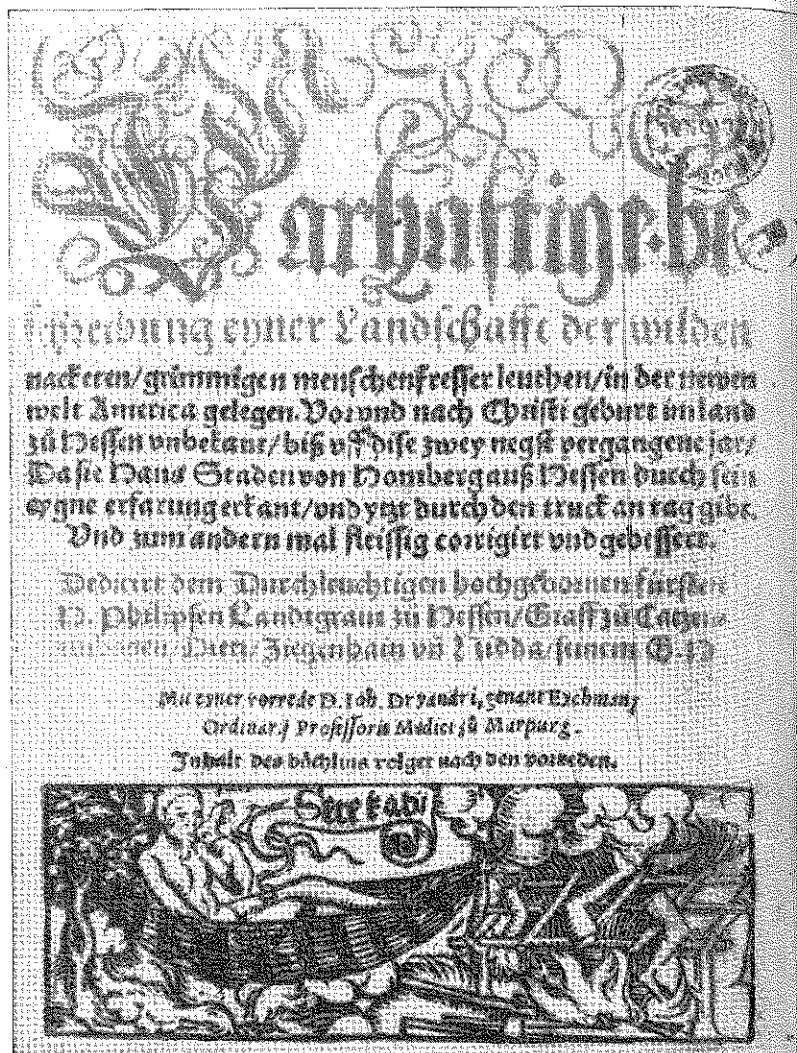 Warhafftige be
schreibung eyner Landtschafft der wilden
nacketen/grimmigen menschenfresser leuthen/in der newen
welt America gelegen. Vor vnd nach Christi geburt im land
zů Hessen vnbekant/biß vff dise zwey negst vergangene jar/
Da sie Hans Staden von Homberg auß Hessen durch sein
eygne erfarung erkant/vnd ytzt durch den truck an tag gibt.
Vnd zum andern mal fleissig corrigirt vnd gebessert.
Dedicirt dem Durchleuchtigen hochgebornen fürsten
H. Philipsen Landtgraff zů Hessen/Graff zů Catzen
Dietz/Ziegenhain vñ Nidda/seinem G. H.
Mit eyner vorrede D. Joh. Dryandri, genant Eychman,
Ordinarij Professoris Medici zů Marpurg.
Inhalt des bůchlins volget nach den vorreden.
Sete kabi